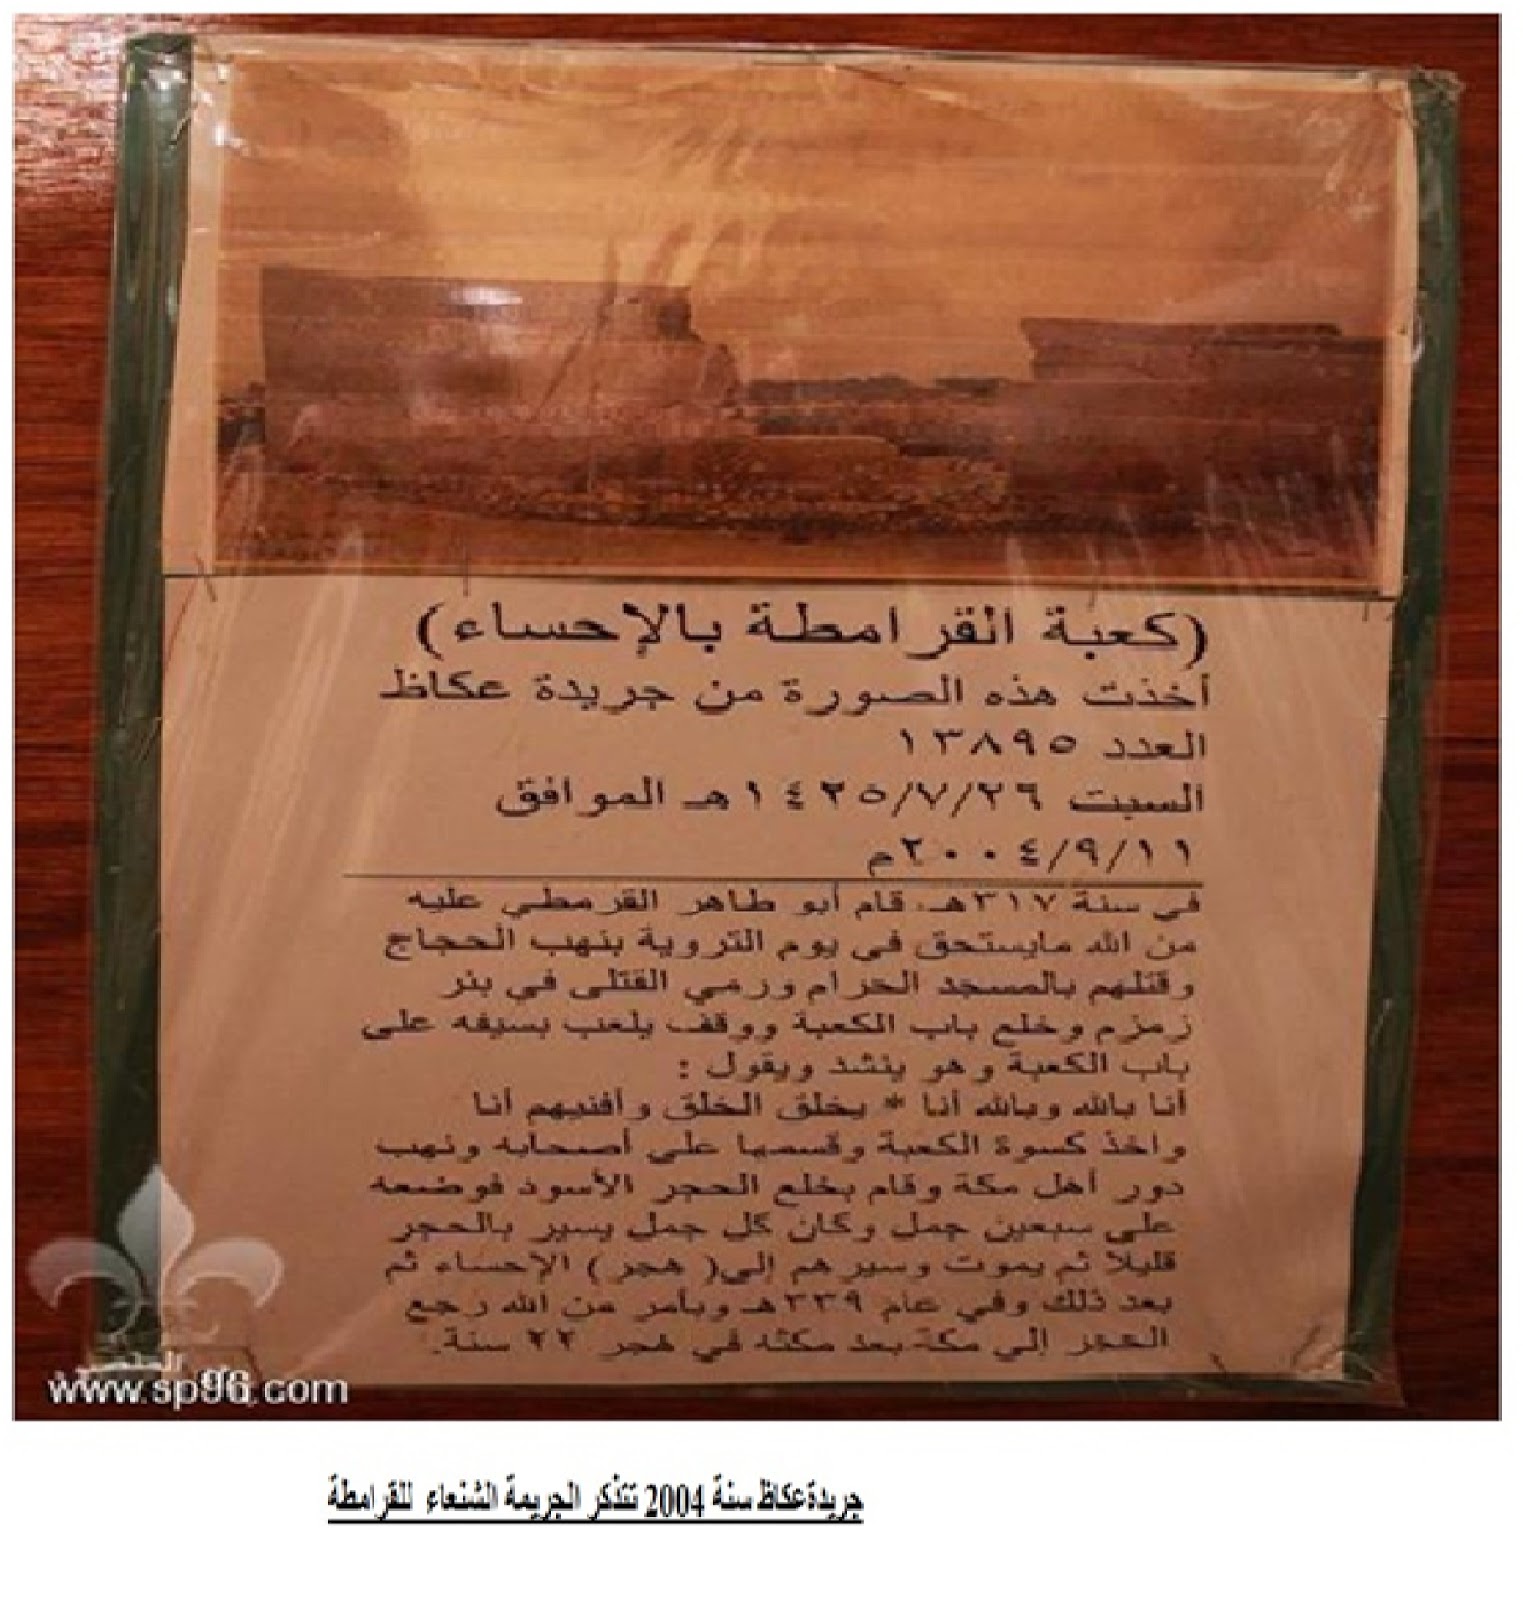 (كعبة القرامطة بالإحساء)
أخذت هذه الصورة من جريدة عكاظ
العدد ١٣٨٩٥
السبت ١٤٢٥/٧/٢٦هـ الموافق
٢٠٠٤/٩/١١م
في سنة ٣١٧هـ. قام أبو طاهر القرمطي عليه
من الله مايستحق في يوم التروية بنهب الحجاج
وقتلهم بالمسجد الحرام ورمي القتلى في بئر
زمزم وخلع باب الكعبة ووقف يلعب بسيفه على
باب الكعبة وهو ينشد ويقول :
أنا بالله وبالله أنا * يخلق الخلق وأفنيهم أنا
واخذ كسوة الكعبة وقسمها على أصحابه ونهب
دور أهل مكة وقام بخلع الحجر الأسود فوضعه
على سبعين جمل وكان كل جمل يسير بالحجر
قليلا ثم يموت وسيرهم إلى( هجر ) الإحساء ثم
بعد ذلك وفي عام ٣٣٩هـ وبأمر من الله رجع
الحجر إلى مكة بعد مكثه في هجر ٢٢ سنة.
www.sp96.com
جريدة عكاظ سنة 2004 تتذكر الجريمة الشنعاء للقرامطة